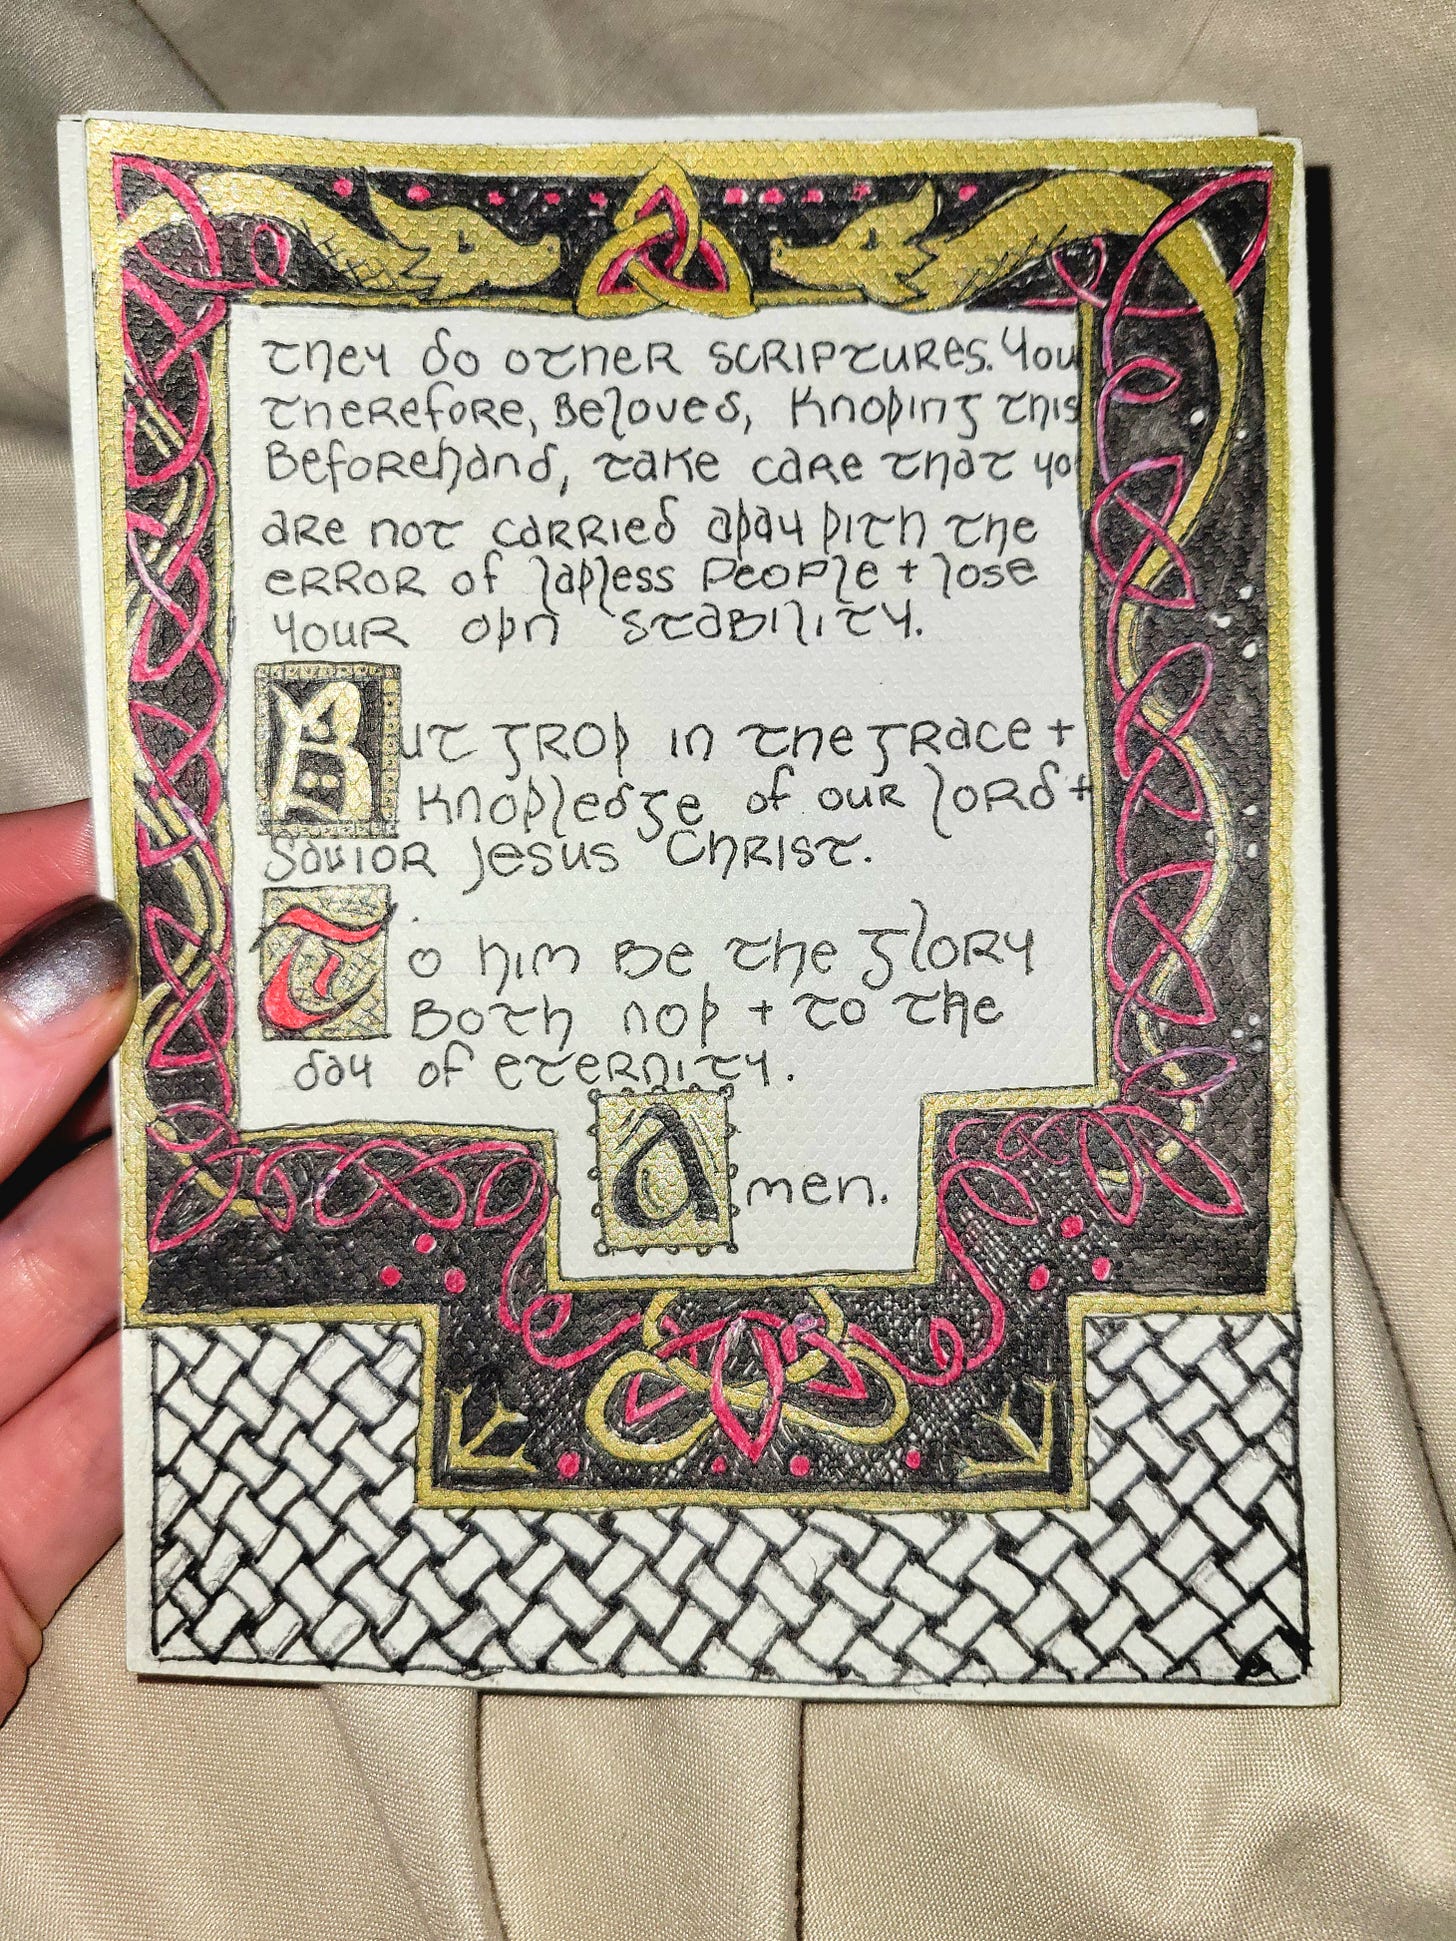 they do other scriptures. You
therefore, Beloved, Knoƿing this
Beforehand, take care that yo
are not carried aƿay ƿith the
error of laƿless People + lose
your oƿn stability.
But groƿ in the grace +
Knoƿledge of our lord +
Savior Jesus Christ.
To him Be the glory
Both noƿ + to the
day of eternity.
Amen.